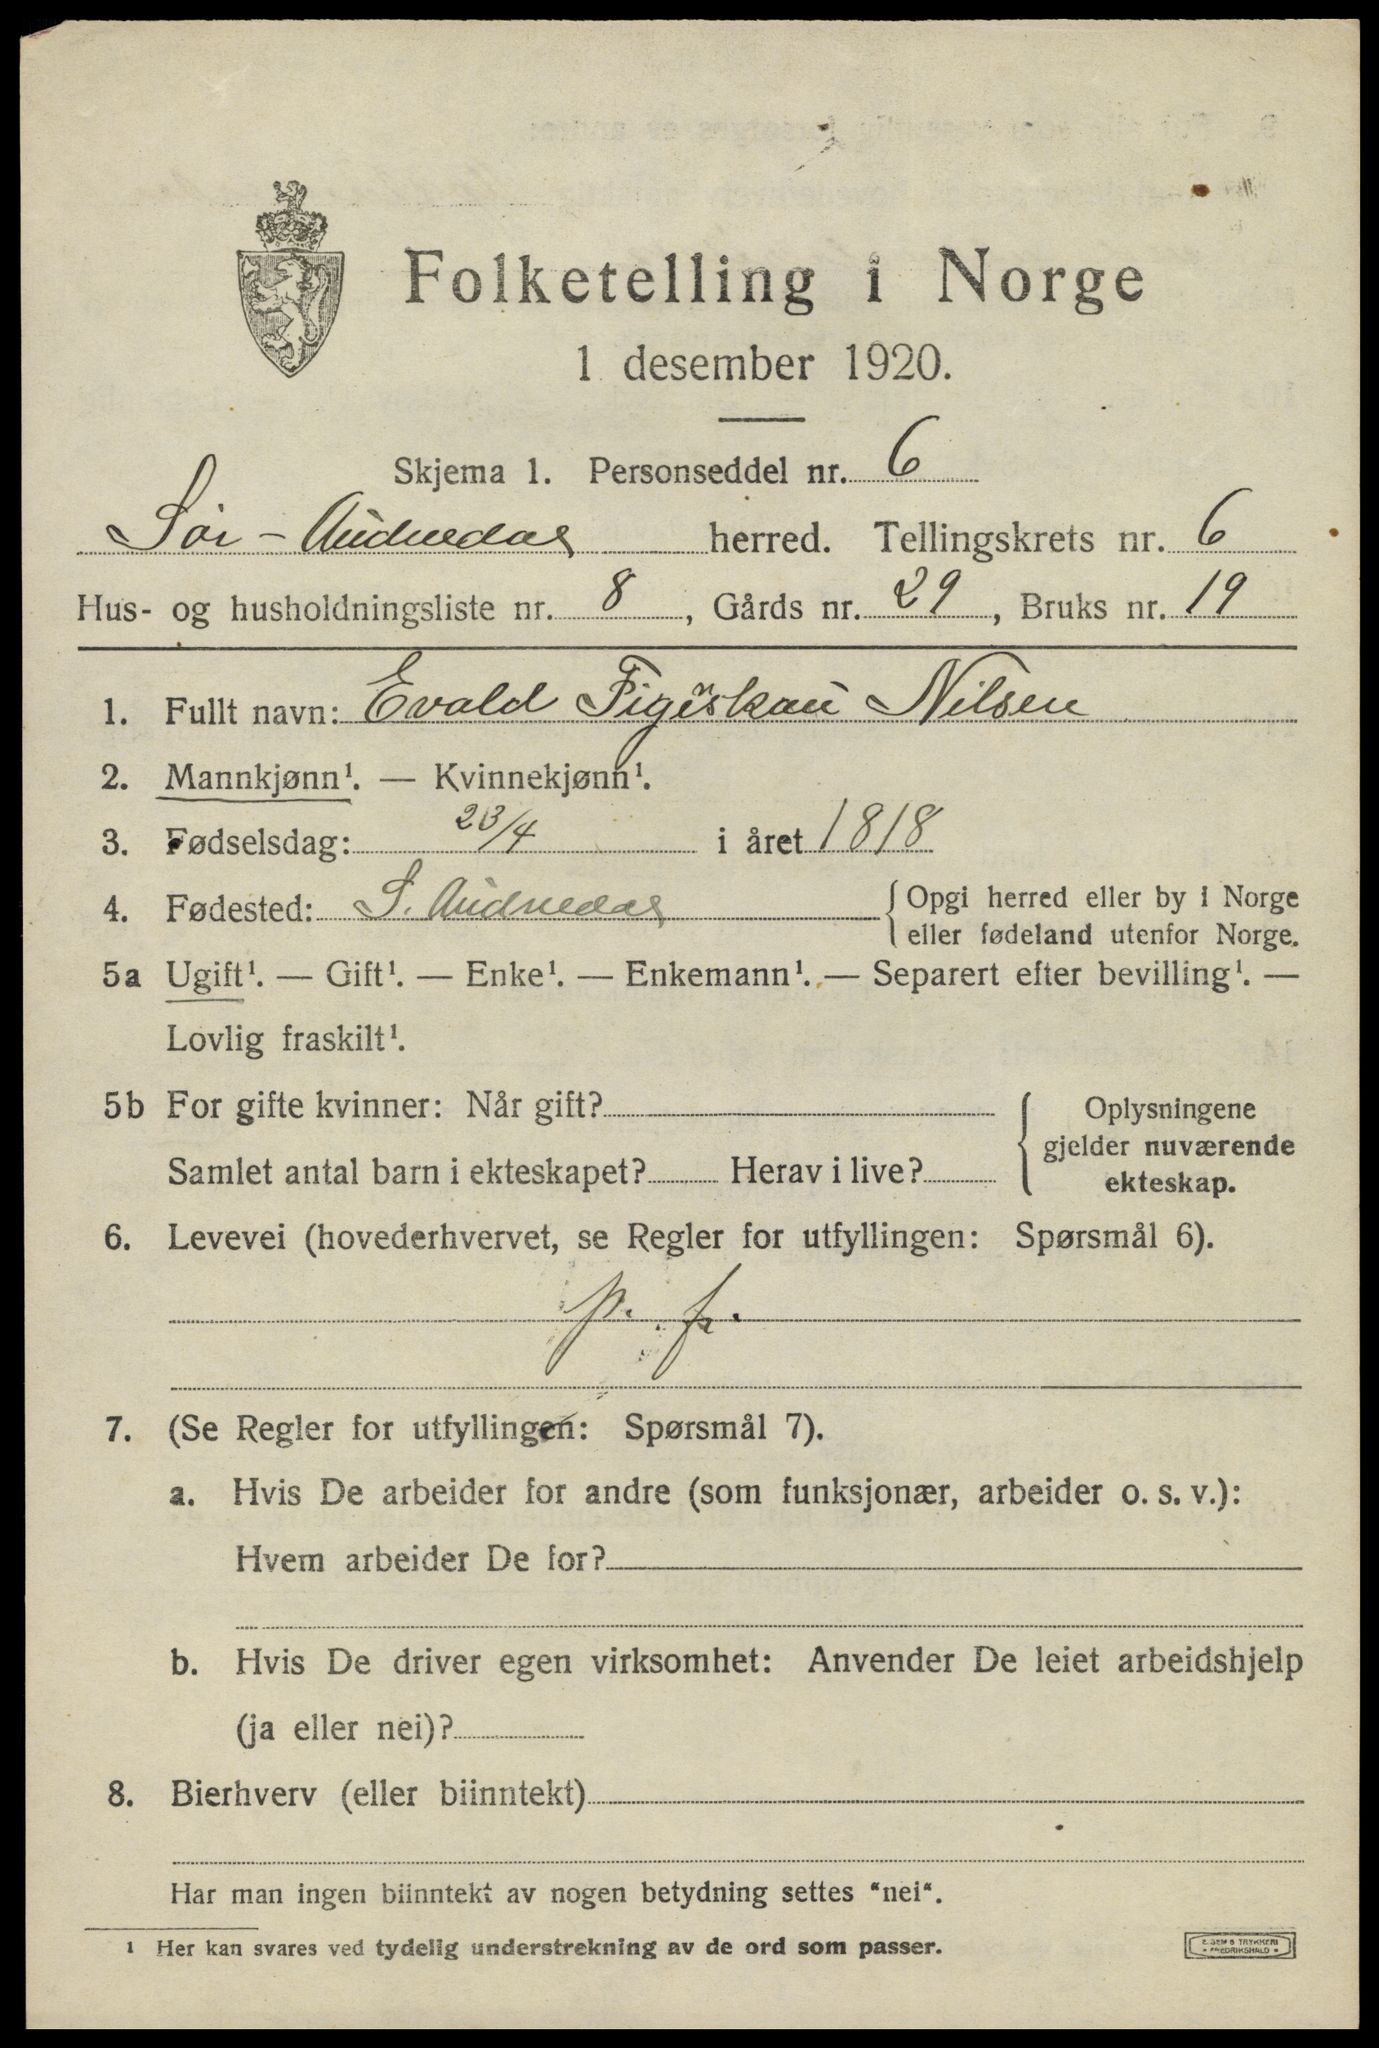 Folketelling i Norge
1 desember 1920.
Skjema 1. Personseddel nr. 6
Sør-Audnedal herred. Tellingskrets nr. 6
Hus- og husholdningsliste nr. 8, Gårds nr. 29, Bruks nr. 19
1. Fullt navn: Evald Nilsen
2. Mannkjønn¹. — Kvinnekjønn¹.
3. Fødselsdag: 23/4 i året 1818
4. Fødested: S. Audnedal {Opgi herred eller by i Norge
eller fødeland utenfor Norge.
5a Ugift¹. — Gift¹. — Enke¹. — Enkemann¹. — Separert efter bevilling¹. —
Lovlig fraskilt¹.
5b For gifte kvinner: Når gift? { Oplysningene
gjelder nuværende
Samlet antal barn i ekteskapet? Herav i live? ekteskap.
6. Levevei (hovederhvervet, se Regler for utfyllingen: Spørsmål 6).
p. f.
7. (Se Regler for utfyllingen: Spørsmål 7).
a. Hvis De arbeider for andre (som funksjonær, arbeider o. s. v.):
Hvem arbeider De for?
b. Hvis De driver egen virksomhet: Anvender De leiet arbeidshjelp
(ja eller nei)?
8. Bierhverv (eller biinntekt)
Har man ingen biinntekt av nogen betydning settes "nei".
¹ Her kan svares ved tydelig understrekning av de ord som passer.
E. SEM'S TRYKKERI
• FREDRIKSHALD •